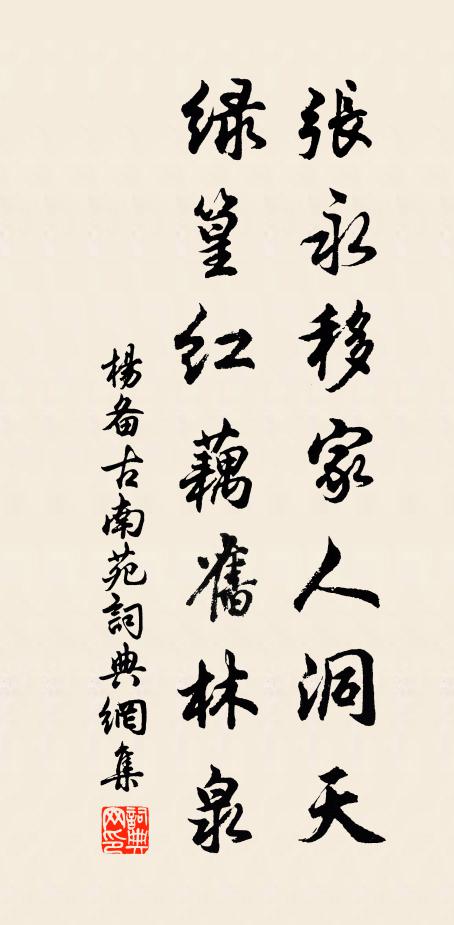 張永移家人洞天
緑篁紅藕舊林泉
楊备古南苑詞典網集
詞典网印